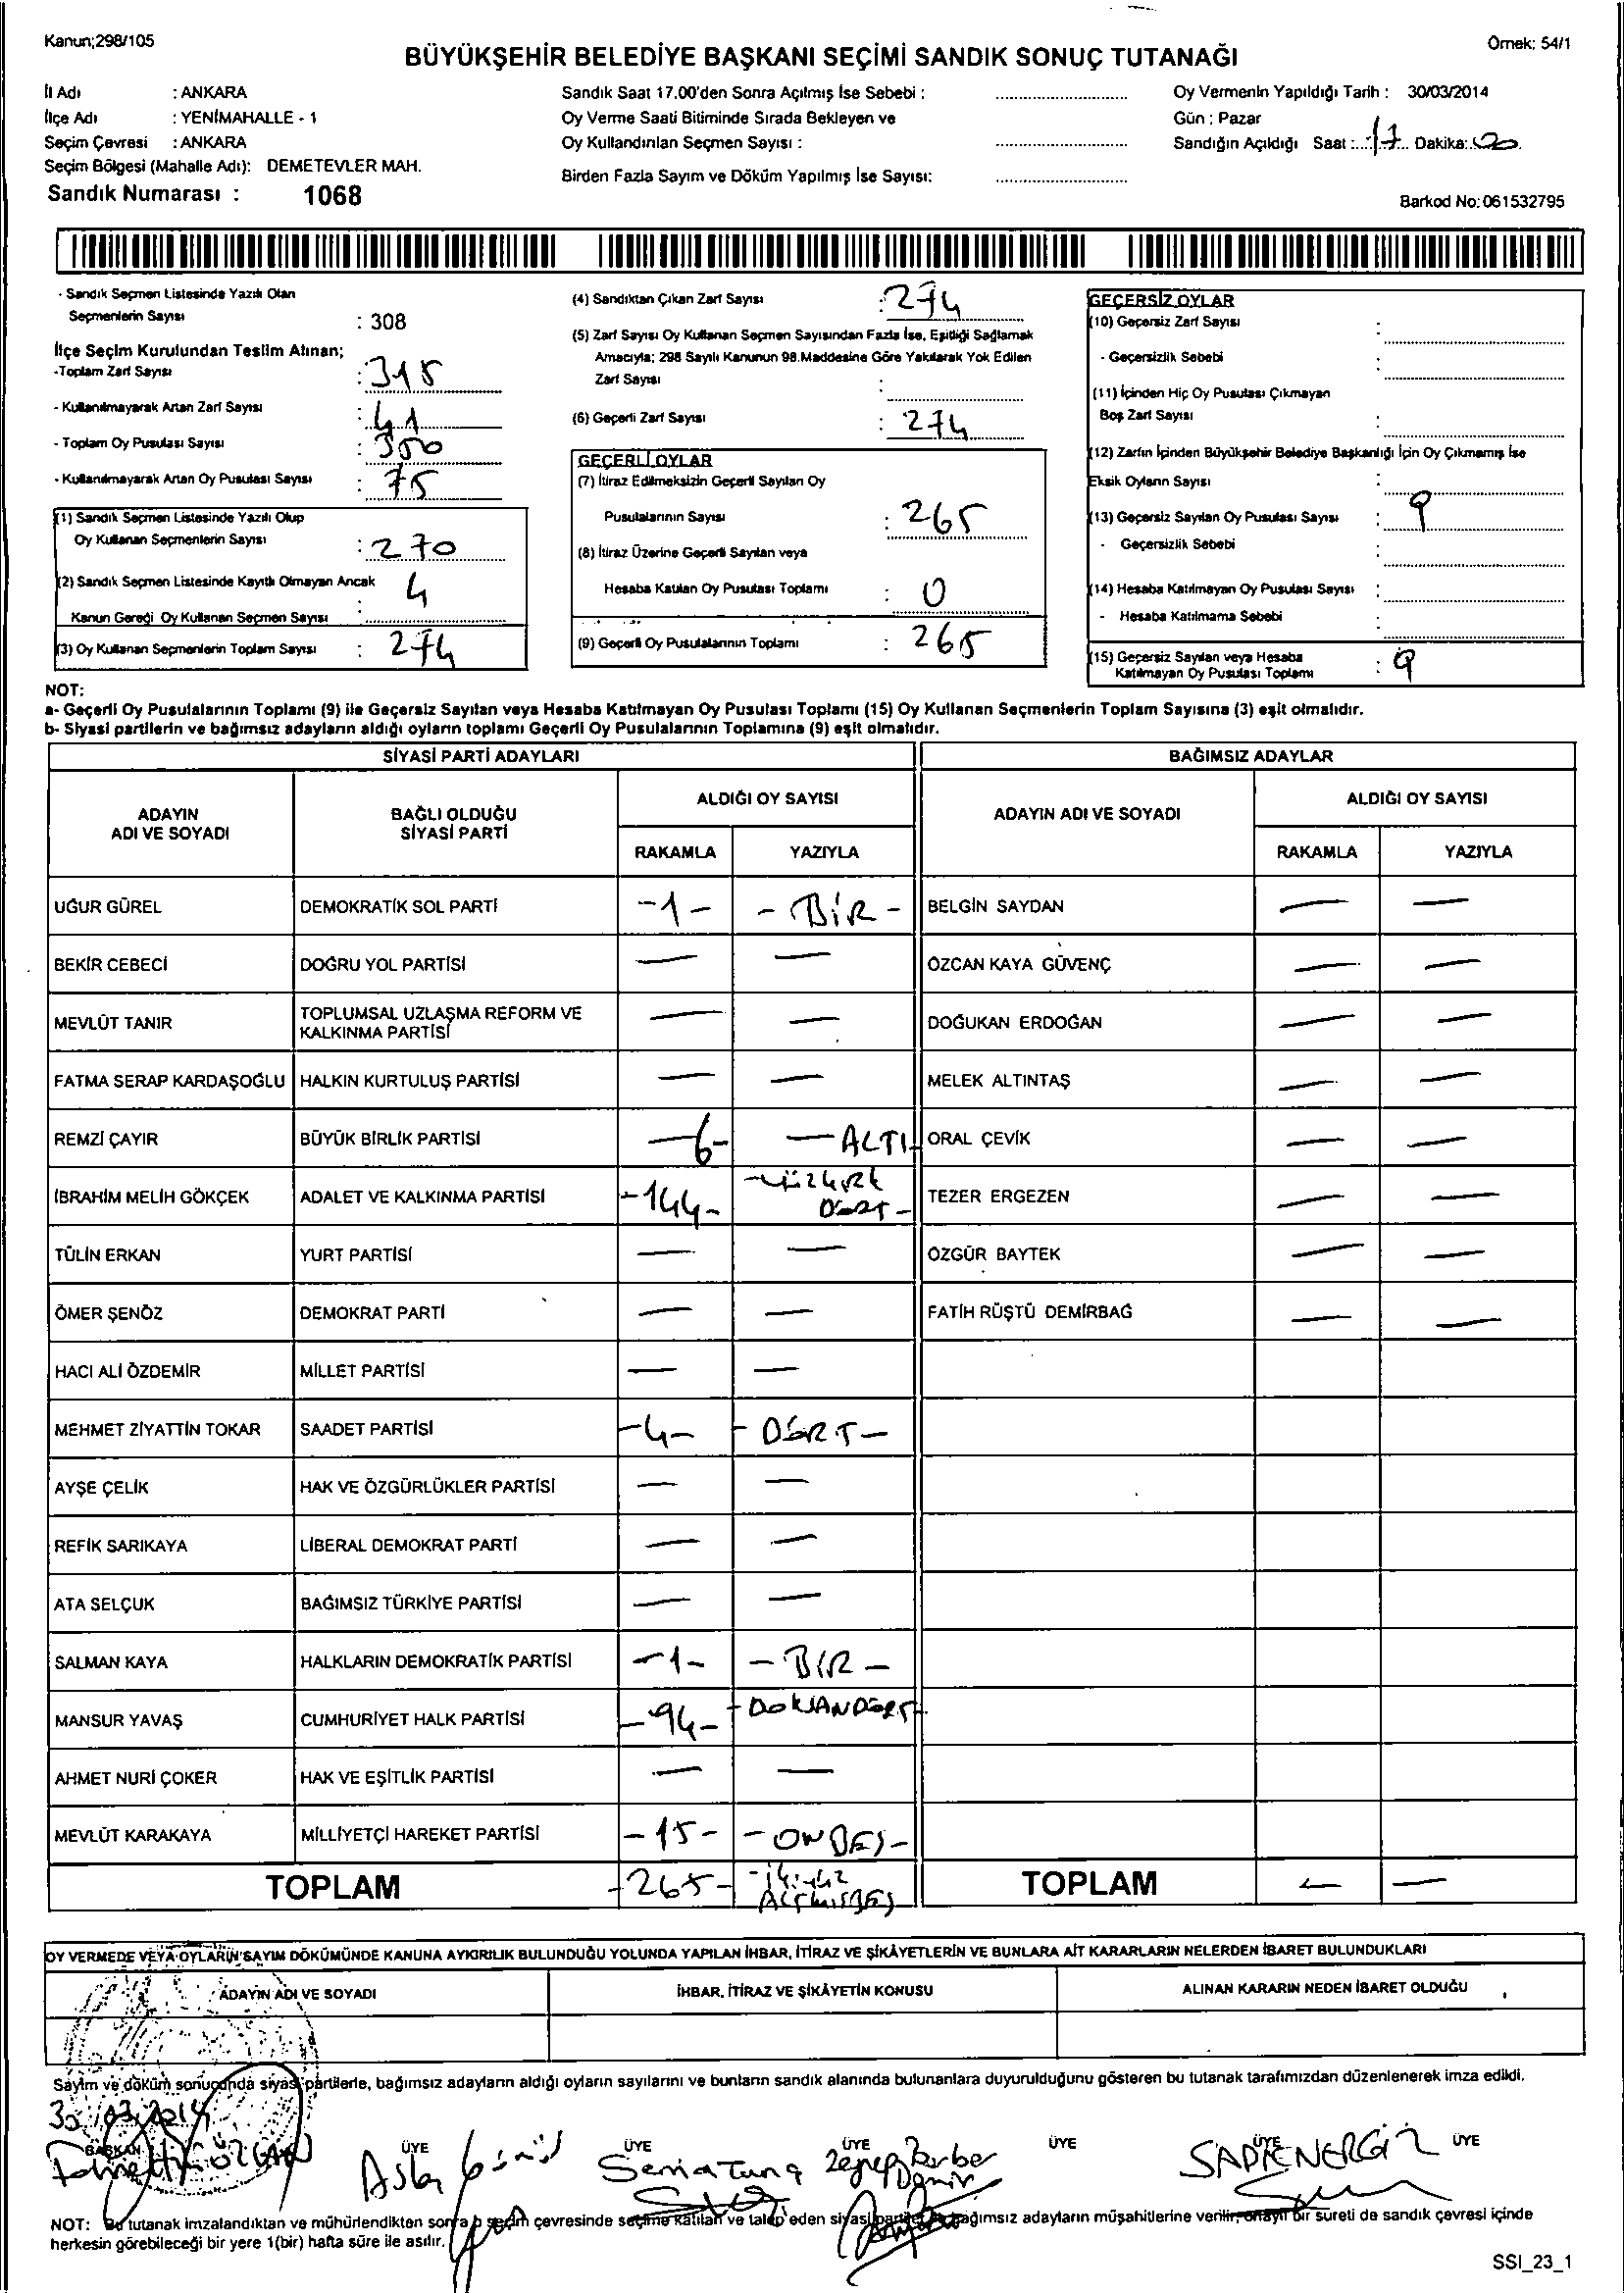 Kanun;298/105
Örnek: 54/1
BÜYÜKŞEHİR BELEDİYE BAŞKANI SEÇİMİ SANDIK SONUÇ TUTANAĞI
İl Adı : ANKARA
İlçe Adı : YENİMAHALLE - 1
Seçim Çevresi : ANKARA
Seçim Bölgesi (Mahalle Adı): DEMETEVLER MAH.
Sandık Numarası : 1068
Sandık Saat 17.00'den Sonra Açılmış İse Sebebi :
Oy Verme Saati Bitiminde Sırada Bekleyen ve
Oy Kullandırılan Seçmen Sayısı :
Birden Fazla Sayım ve Döküm Yapılmış İse Sayısı:
Oy Vermenin Yapıldığı Tarih : 30/03/2014
Gün : Pazar
Sandığın Açıldığı Saat : 17 Dakika:
Barkod No: 061532795
- Sandık Seçmen Listesinde Yazılı Olan
Seçmenlerin Sayısı : 308
İlçe Seçim Kurulundan Teslim Alınan;
-Toplam Zarf Sayısı : 315
- Kullanılmayarak Artan Zarf Sayısı : 41
- Toplam Oy Pusulası Sayısı : 350
- Kullanılmayarak Artan Oy Pusulası Sayısı : 75
(1) Sandık Seçmen Listesinde Yazılı Olup
Oy Kullanan Seçmenlerin Sayısı : 270
(2) Sandık Seçmen Listesinde Kayıtlı Olmayan Ancak
Kanun Gereği Oy Kullanan Seçmen Sayısı : 4
(3) Oy Kullanan Seçmenlerin Toplam Sayısı : 274
(4) Sandıktan Çıkan Zarf Sayısı : 274
(5) Zarf Sayısı Oy Kullanan Seçmen Sayısından Fazla İse, Eşitliği Sağlamak
Amacıyla; 298 Sayılı Kanunun 98.Maddesine Göre Yakılarak Yok Edilen
Zarf Sayısı :
(6) Geçerli Zarf Sayısı : 274
GEÇERLİ OYLAR
(7) İtiraz Edilmeksizin Geçerli Sayılan Oy
Pusulalarının Sayısı : 265
(8) İtiraz Üzerine Geçerli Sayılan veya
Hesaba Katılan Oy Pusulası Toplamı : 0
(9) Geçerli Oy Pusulalarının Toplamı : 265
GEÇERSİZ OYLAR
(10) Geçersiz Zarf Sayısı :
- Geçersizlik Sebebi :
(11) İçinden Hiç Oy Pusulası Çıkmayan
Boş Zarf Sayısı :
(12) Zarfın İçinden Büyükşehir Belediye Başkanlığı İçin Oy Çıkmamış İse
Eksik Oyların Sayısı :
(13) Geçersiz Sayılan Oy Pusulası Sayısı : 9
- Geçersizlik Sebebi :
(14) Hesaba Katılmayan Oy Pusulası Sayısı :
- Hesaba Katılmama Sebebi :
(15) Geçersiz Sayılan veya Hesaba
Katılmayan Oy Pusulası Toplamı : 9
NOT:
a- Geçerli Oy Pusulalarının Toplamı (9) ile Geçersiz Sayılan veya Hesaba Katılmayan Oy Pusulası Toplamı (15) Oy Kullanan Seçmenlerin Toplam Sayısına (3) eşit olmalıdır.
b- Siyasi partilerin ve bağımsız adayların aldığı oyların toplamı Geçerli Oy Pusulalarının Toplamına (9) eşit olmalıdır.
SİYASİ PARTİ ADAYLARI BAĞIMSIZ ADAYLAR
ADAYIN ADI VE SOYADI BAĞLI OLDUĞU SİYASİ PARTİ ALDIĞI OY SAYISI ADAYIN ADI VE SOYADI ALDIĞI OY SAYISI
RAKAMLA YAZIYLA RAKAMLA YAZIYLA
UĞUR GÜREL DEMOKRATİK SOL PARTİ -1- - BİR - BELGİN SAYDAN — —
BEKİR CEBECİ DOĞRU YOL PARTİSİ — — ÖZCAN KAYA GÜVENÇ — —
MEVLÜT TANIR TOPLUMSAL UZLAŞMA REFORM VE KALKINMA PARTİSİ — — DOĞUKAN ERDOĞAN — —
FATMA SERAP KARDAŞOĞLU HALKIN KURTULUŞ PARTİSİ — — MELEK ALTINTAŞ — —
REMZİ ÇAYIR BÜYÜK BİRLİK PARTİSİ —6- — ALTI- ORAL ÇEVİK — —
İBRAHİM MELİH GÖKÇEK ADALET VE KALKINMA PARTİSİ -144- -YÜZKIRK DÖRT - TEZER ERGEZEN — —
TÜLİN ERKAN YURT PARTİSİ — — ÖZGÜR BAYTEK — —
ÖMER ŞENÖZ DEMOKRAT PARTİ — — FATİH RÜŞTÜ DEMİRBAĞ — —
HACI ALİ ÖZDEMİR MİLLET PARTİSİ — —
MEHMET ZİYATTİN TOKAR SAADET PARTİSİ -4- - DÖRT -
AYŞE ÇELİK HAK VE ÖZGÜRLÜKLER PARTİSİ — —
REFİK SARIKAYA LİBERAL DEMOKRAT PARTİ — —
ATA SELÇUK BAĞIMSIZ TÜRKİYE PARTİSİ — —
SALMAN KAYA HALKLARIN DEMOKRATİK PARTİSİ -1- - BİR -
MANSUR YAVAŞ CUMHURİYET HALK PARTİSİ -94- - DOKSANDÖRT-
AHMET NURİ ÇOKER HAK VE EŞİTLİK PARTİSİ — —
MEVLÜT KARAKAYA MİLLİYETÇİ HAREKET PARTİSİ -15- - ONBEŞ -
TOPLAM -265- -İKİYÜZ ALTMIŞBEŞ TOPLAM — —
OY VERMEDE VEYA OYLARIN SAYIM DÖKÜMÜNDE KANUNA AYKIRILIK BULUNDUĞU YOLUNDA YAPILAN İHBAR, İTİRAZ VE ŞİKÂYETLERİN VE BUNLARA AİT KARARLARIN NELERDEN İBARET BULUNDUKLARI
ADAYIN ADI VE SOYADI İHBAR, İTİRAZ VE ŞİKÂYETİN KONUSU ALINAN KARARIN NEDEN İBARET OLDUĞU
Sayım ve döküm sonucunda siyasi partilerle, bağımsız adayların aldığı oyların sayılarını ve bunların sandık alanında bulunanlara duyurulduğunu gösteren bu tutanak tarafımızdan düzenlenerek imza edildi.
30/03/2014
BAŞKAN ÜYE ÜYE ÜYE ÜYE ÜYE ÜYE
Sema Tuna Zeynep Berber
NOT: Bu tutanak imzalandıktan ve mühürlendikten sonra seçim çevresinde seçime katılan ve talep eden siyasi partiler bağımsız adayların müşahitlerine verilir, onaylı bir sureti de sandık çevresi içinde
herkesin görebileceği bir yere 1(bir) hafta süre ile asılır.
SSI_23_1